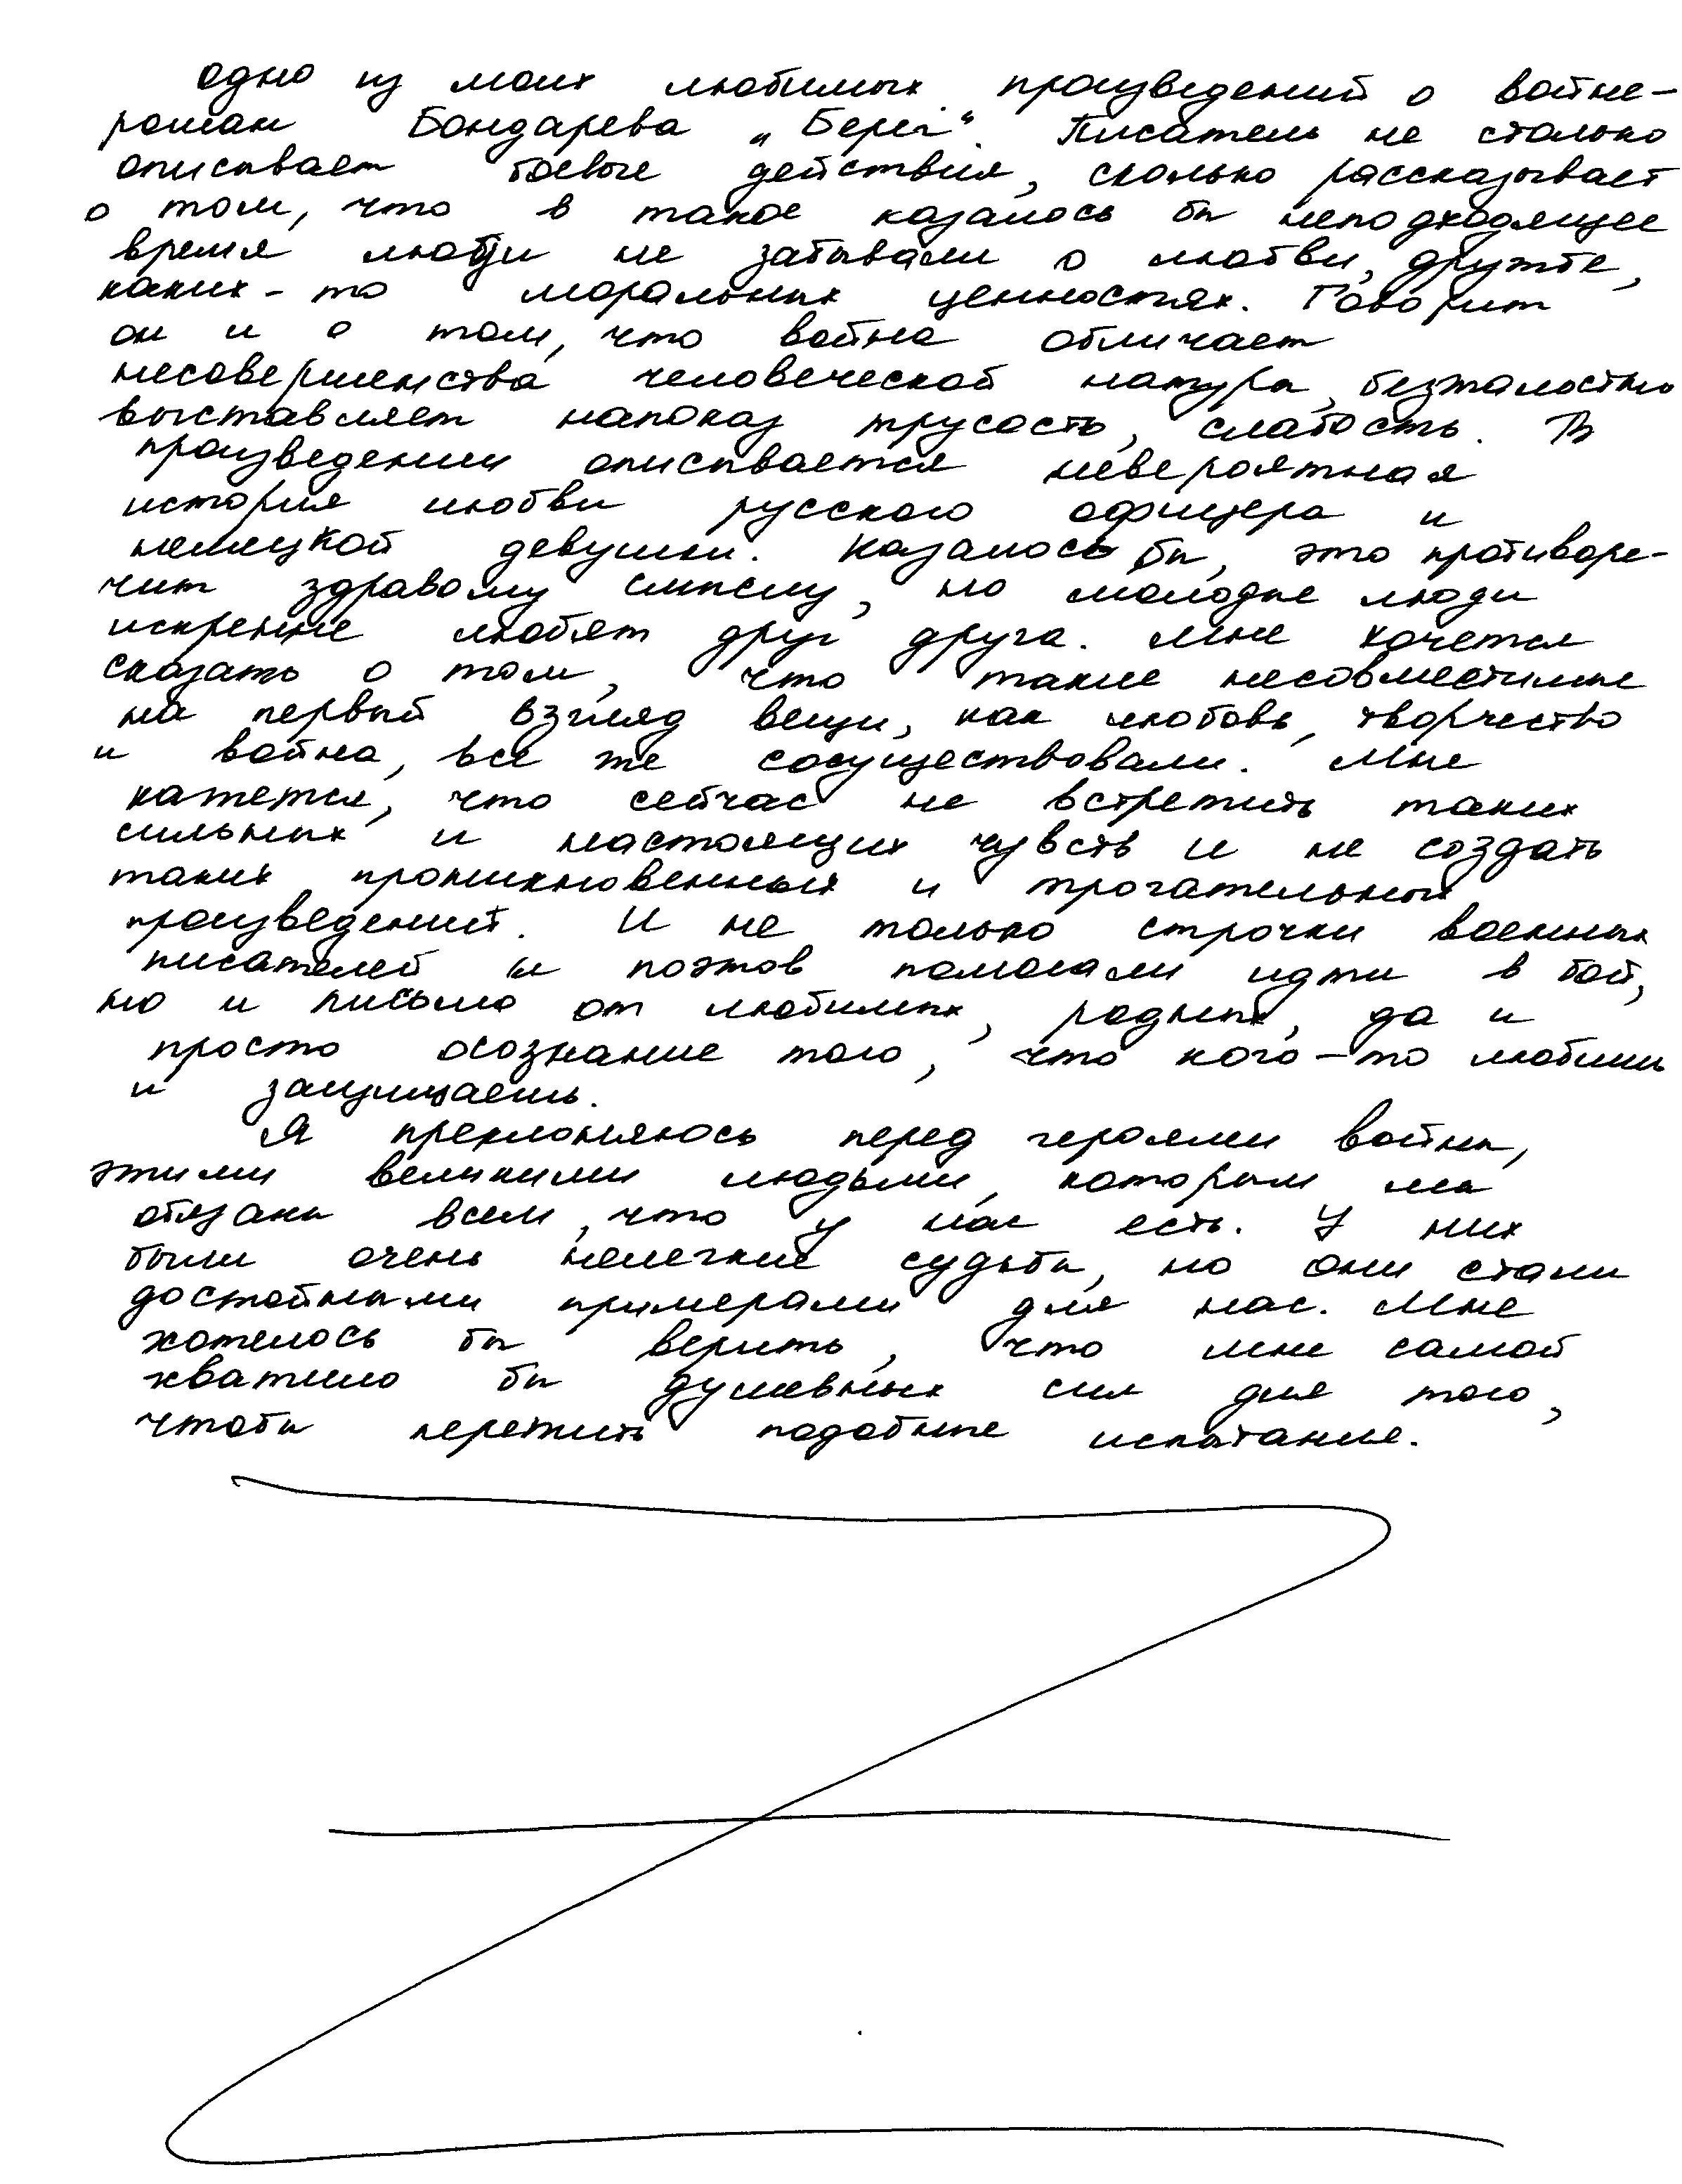 Одно из моих любимых произведений о войне-
роман Бондарева „Берег“. Писатель не столько
описывает боевые действия, сколько рассказывает
о том, что в такое казалось бы неподходящее
время люди не забывали о любви, дружбе,
каких-то моральных ценностях. Говорит
он и о том, что война обличает
несовершенства человеческой натуры, безжалостно
выставляет напоказ трусость, слабость. В
произведении описывается невероятная
история любви русского офицера и
немецкой девушки. Казалось бы, это противоре-
чит здравому смыслу, но молодые люди
искренне любят друг друга. Мне хочется
сказать о том, что такие несовместимые
на первый взгляд вещи, как любовь, творчество
и война, все же сосуществовали. Мне
кажется, что сейчас не встретить таких
сильных и настоящих чувств и не создать
таких проникновенных и трогательных
произведений. И не только строчки военных
писателей и поэтов помогали идти в бой,
но и письма от любимых, родных, да и
просто осознание того, что кого-то любишь
и защищаешь.
Я преклоняюсь перед героями войны,
этими великими людьми, которым мы
обязаны всем, что у нас есть. У них
были очень нелегкие судьбы, но они стали
достойными примерами для нас. Мне
хотелось бы верить, что мне самой
хватило бы душевных сил для того,
чтобы пережить подобные испытание.